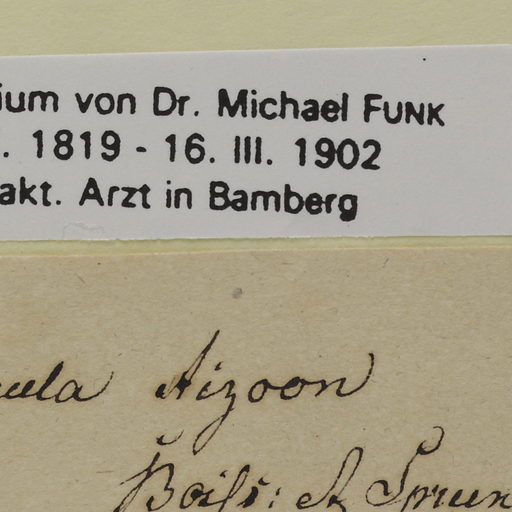 ium von Dr. Michael FUNK
. 1819 - 16. III. 1902
akt. Arzt in Bamberg
ula Aizoon
Boiſs: et Sprun